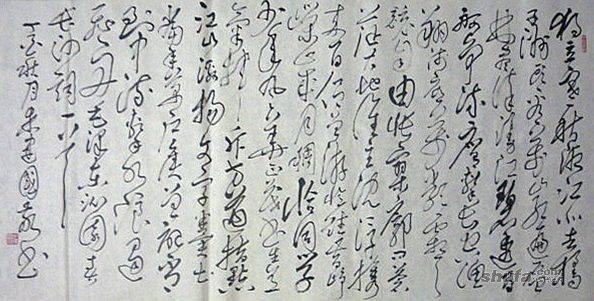 独立寒秋湘江北去橘
子洲头看万山红遍
林尽染漫江碧透百
舸争流鹰击长空鱼
翔浅底万类霜天
竞自由怅寥廓问苍
茫大地谁主沉浮携
来百侣曾游忆往昔峥
嵘岁月稠恰同学
少年风华正茂书生意
气挥斥方遒指点
江山激扬文字粪土
当年万户侯曾记否
到中流击水浪遏
飞舟毛泽东沁园春
长沙词一首
秋月朱建国书